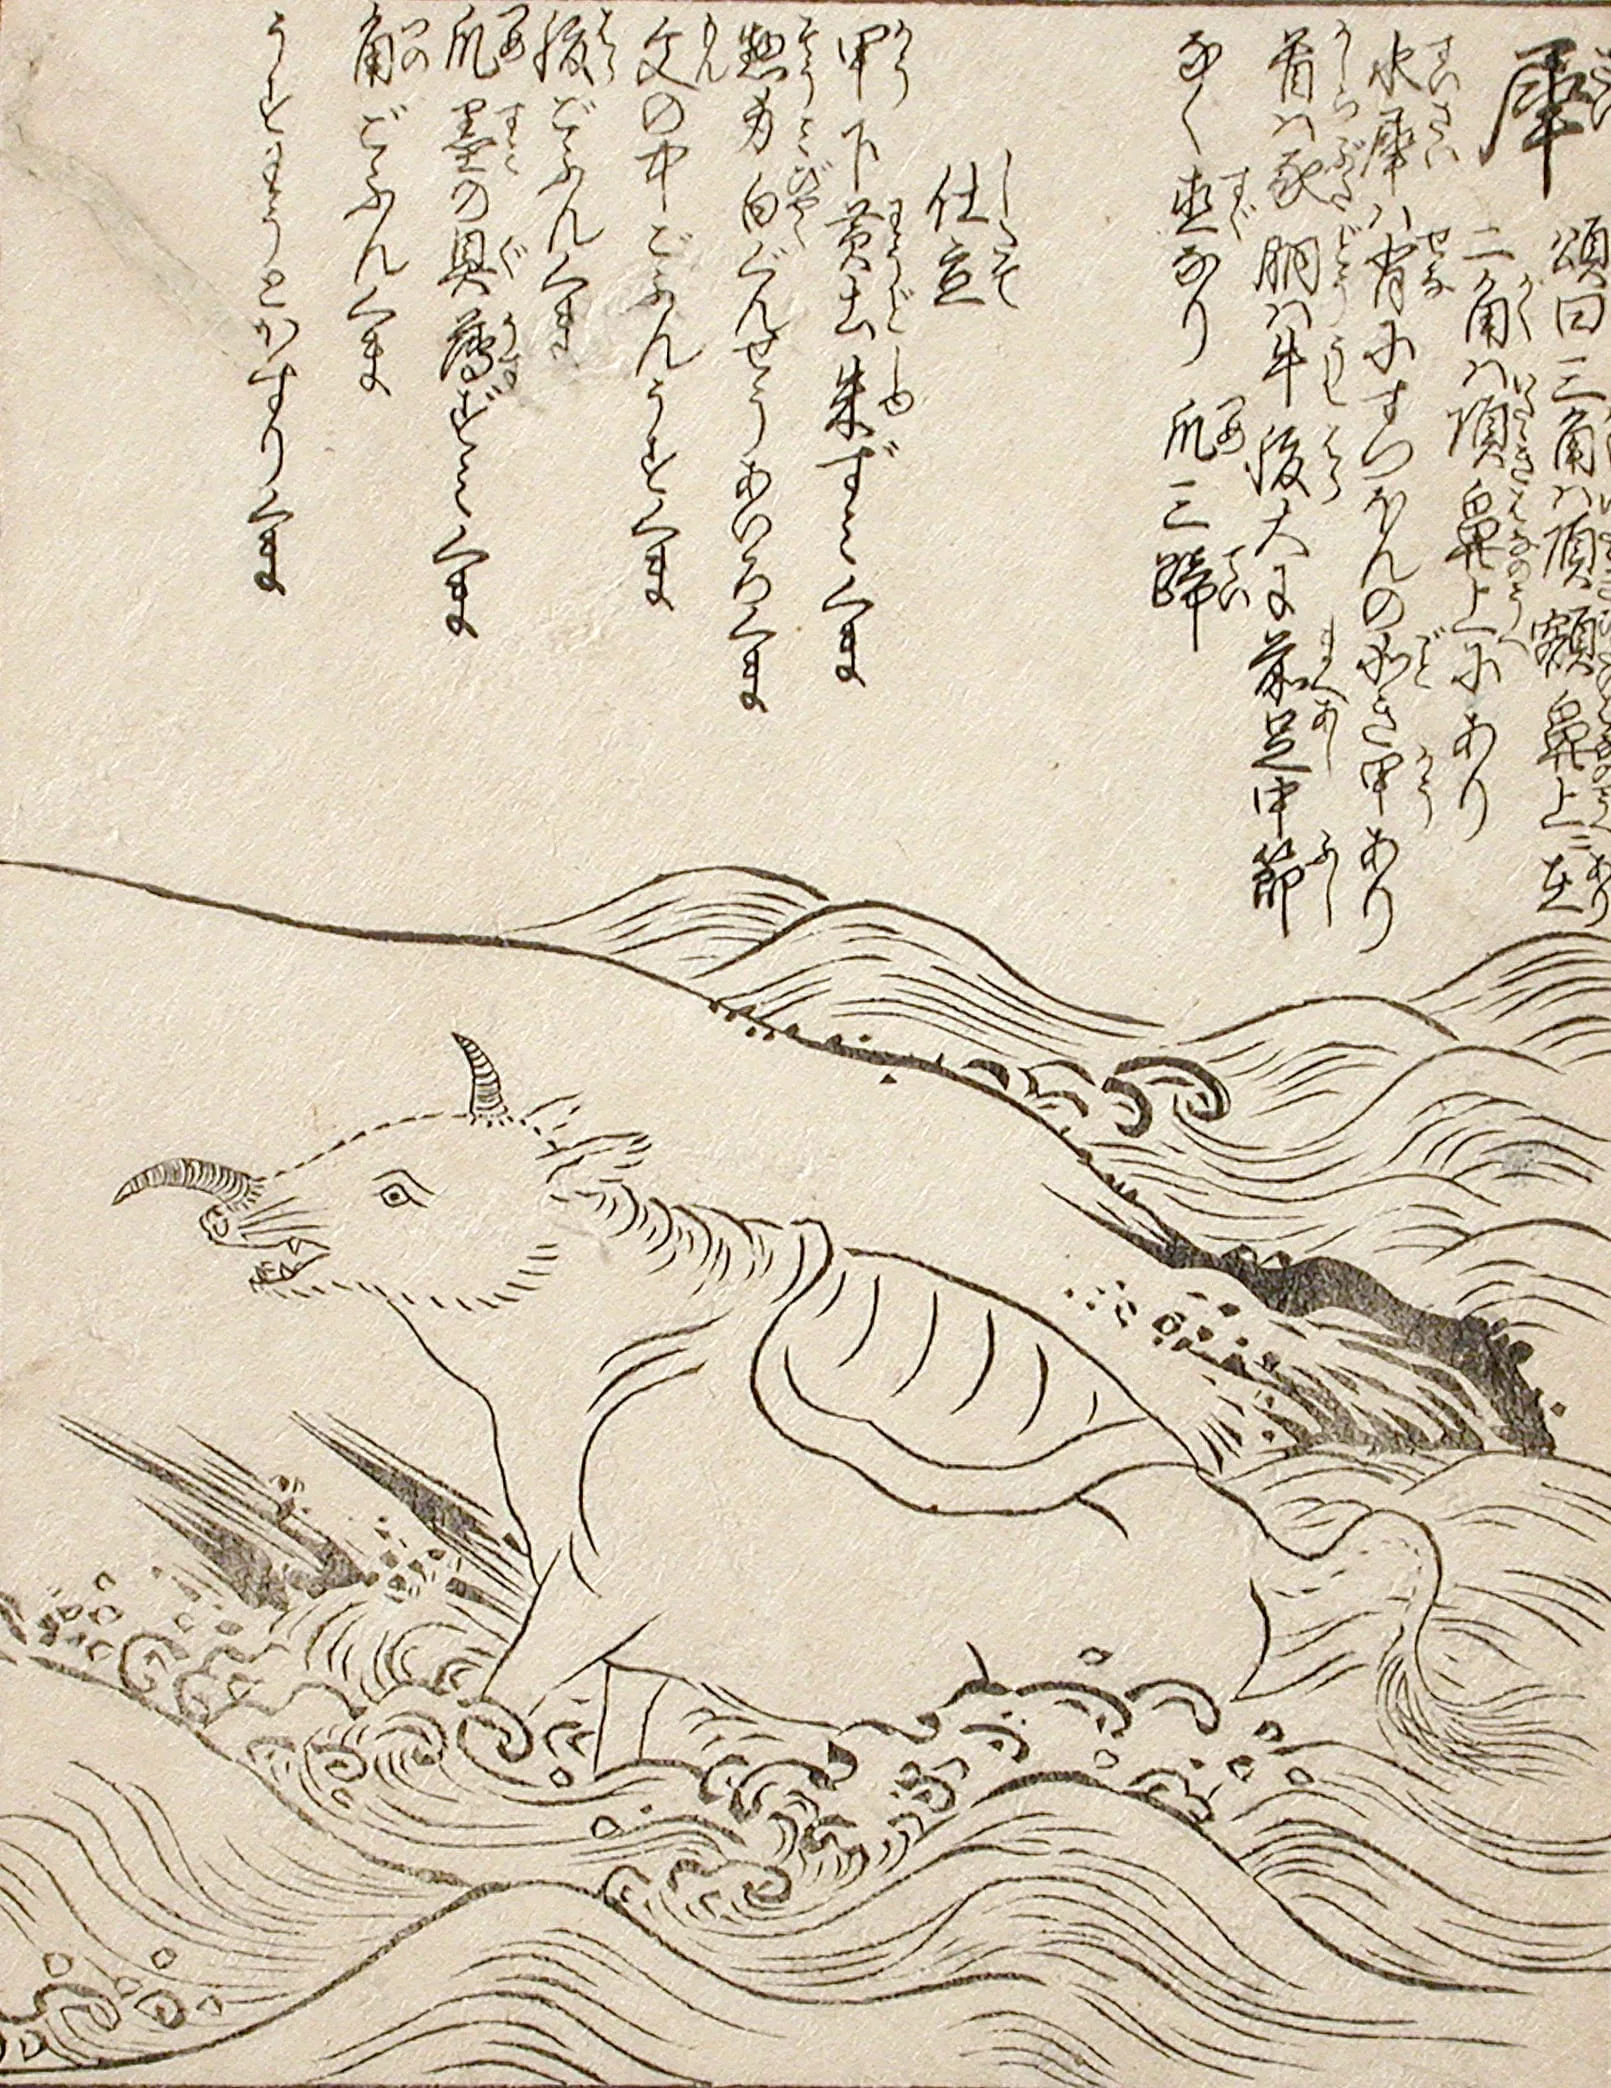 犀 頌曰三角ハ頂額鼻上ニ在
二角ハ頂鼻上にあり
水犀ハ背にすつほんの如き甲あり
首ハ豕胴ハ牛腹大に前足中節
なく直なり 爪三蹄
仕立
甲下黄土朱ずミくま
惣身白ぐんせうあいろくま
文の中ごふんうすくま
腹ごふんくま
爪墨の具薄ずミくま
角ごふんくま
うすわうとかすりくま